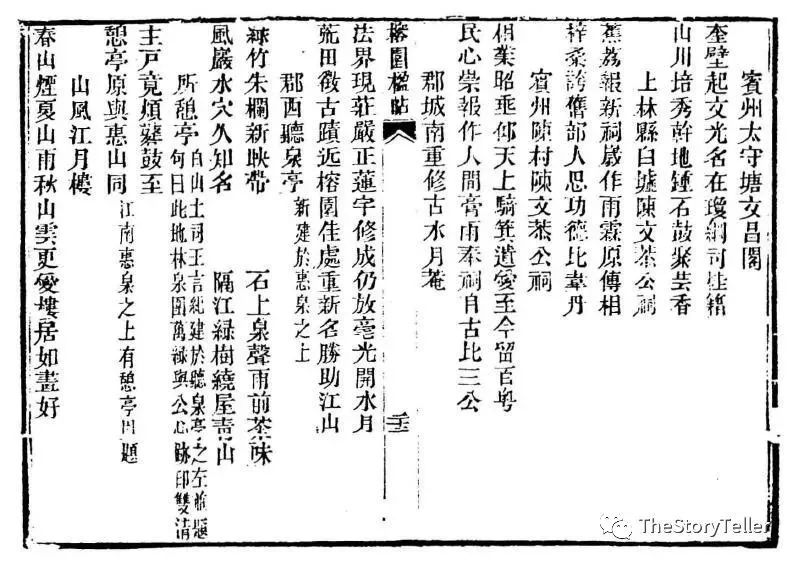 賓州太守塘文昌閣
奎壁起文光名在瓊綱司桂籍
山川培秀幹地鍾石鼓聚芸香
上林縣白墟陳文恭公祠
蕉荔報新祠歲作雨霖原傳相
梓桑誇舊部人思功德比韋丹
賓州陳村陳文恭公祠
相業昭垂仰天上騎箕遺愛至今留百粵
民心崇報作人間膏雨奉祠自古比三公
郡城南重修古水月庵
榕園楹帖
法界現莊嚴正蓮宇修成仍放毫光開水月
荒田徵古蹟近榕園佳處重新名勝助江山
郡西聽泉亭 新建於惠泉之上
綠竹朱欄新映帶 石上泉聲雨前茶味
風巖水穴久知名 隔江綠樹繞屋青山
所憩亭 白山土司王言紀建於聽泉亭之左前題
句曰此地林泉圍萬綠與公心跡印雙清
主戶竟煩鼛鼓至
憩亭原與惠山同 江南惠泉之上有憩亭同題
山風江月樓
春山煙夏山雨秋山雲更愛樓居如畫好
TheStoryTeller